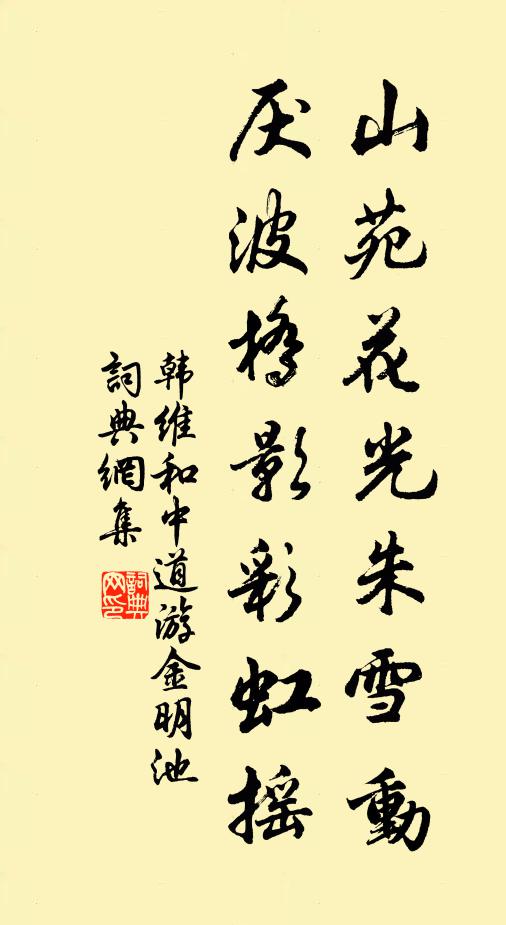 山苑花光朱雪動
灰波橋影彩虹摇
韩維和中道游金明池
詞典網集
詞典网印